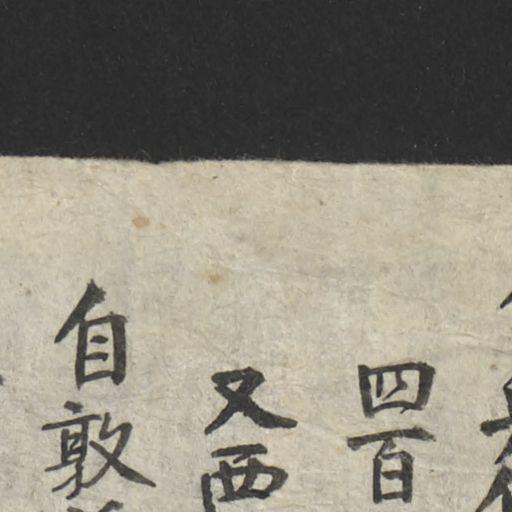 四百
又西
自敦